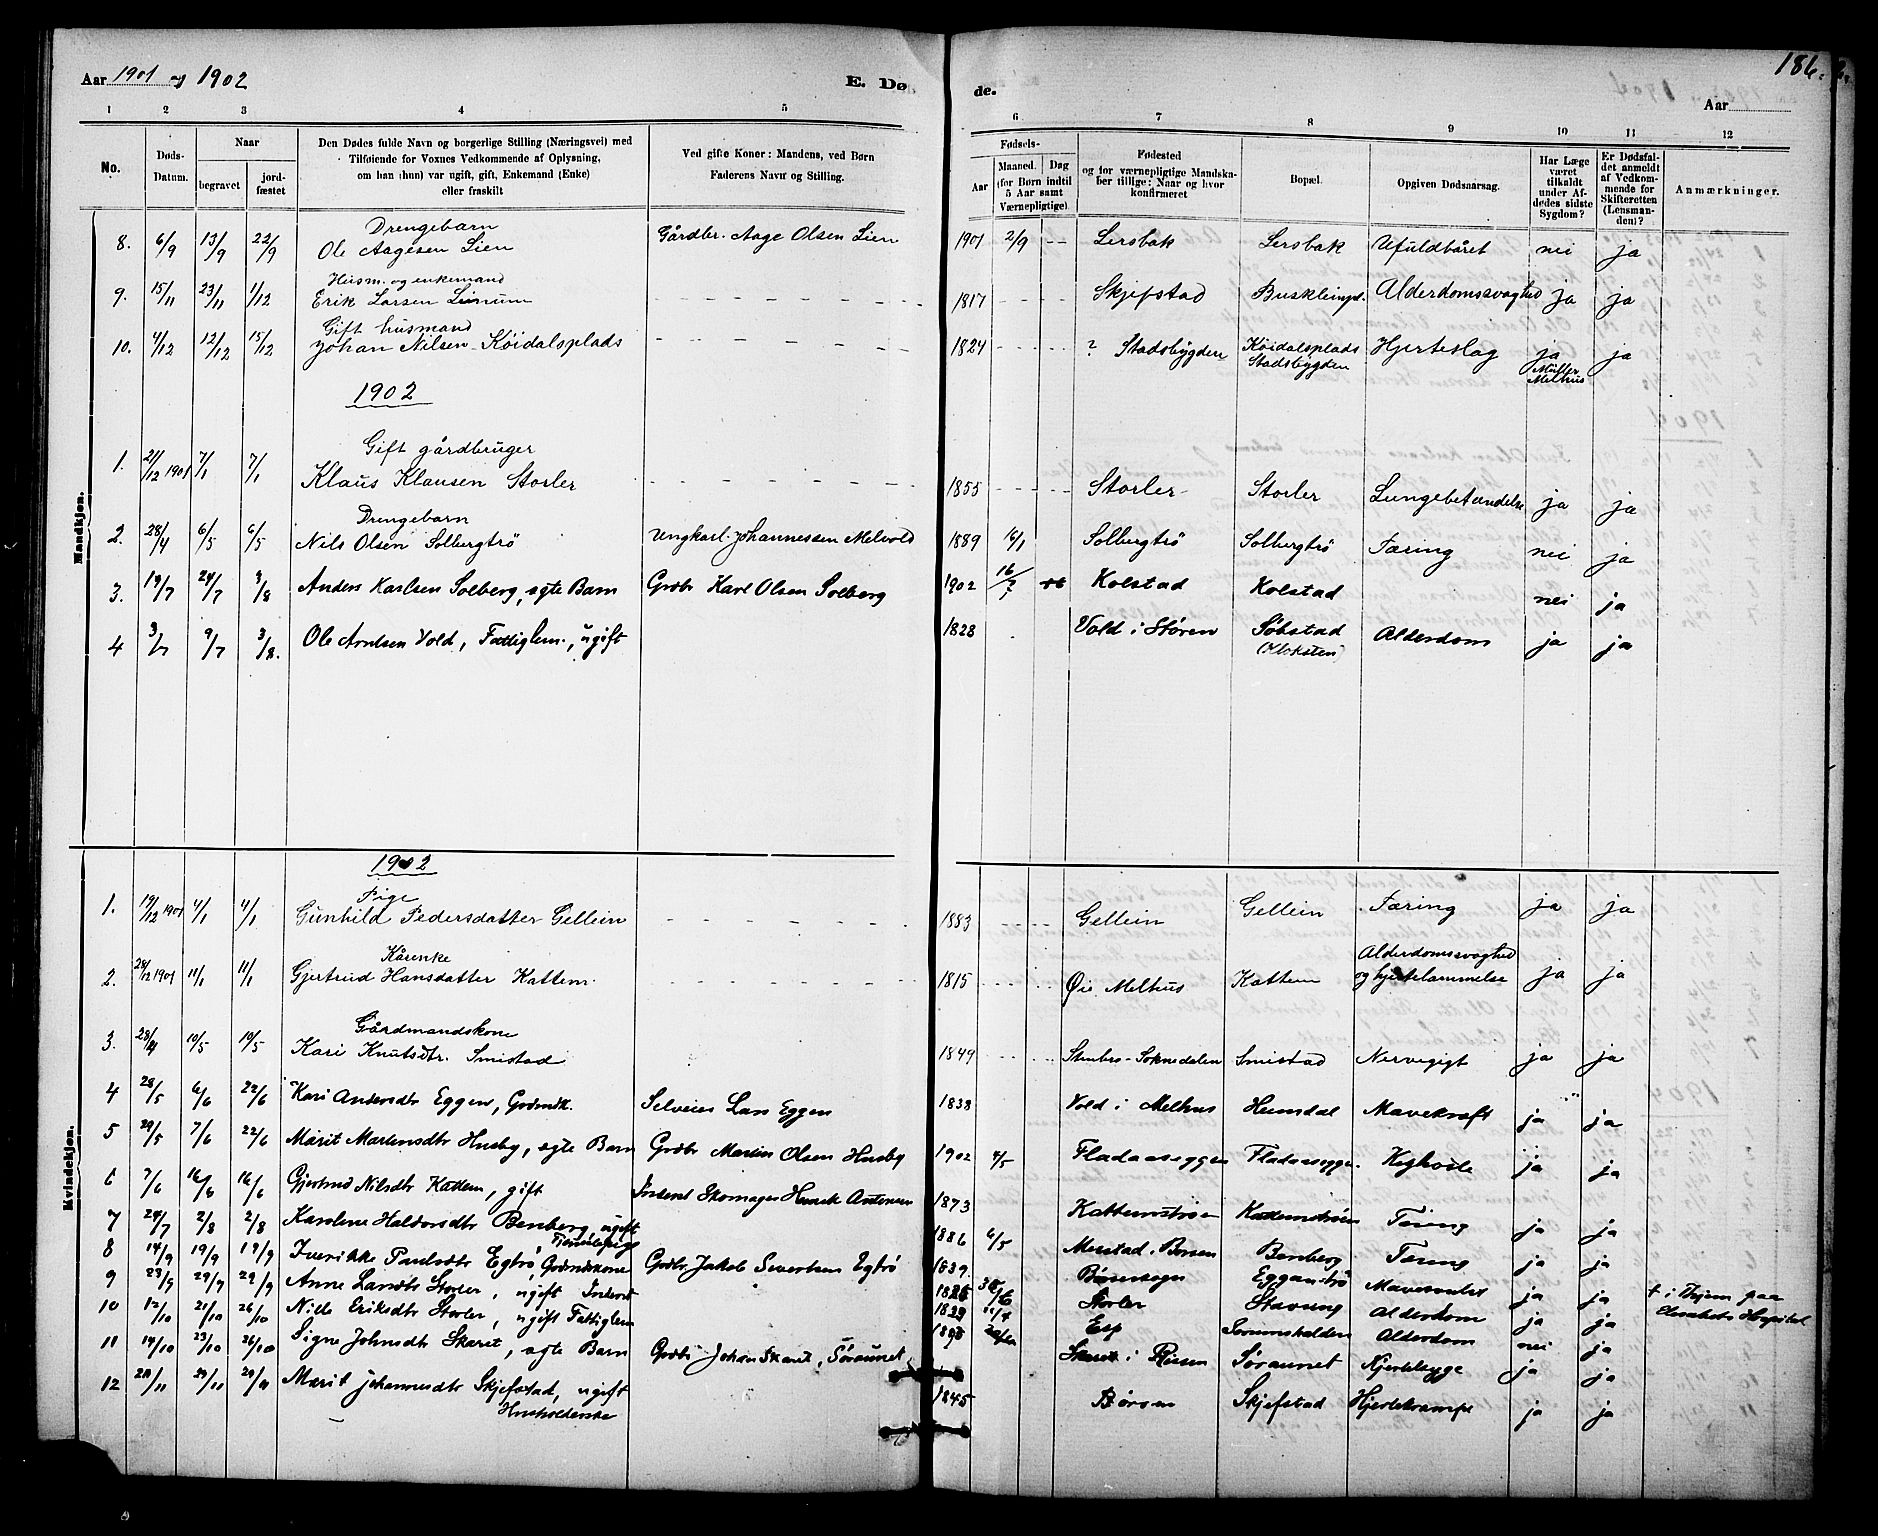 Aar 1901 og 1902
E. Dø
de.
186.
Aar
1 2 3 4 5 6 7 8 9 10 11 12
No.
Døds-Datum.
Naar
begravet
jordfæstet
Den Dødes fulde Navn og borgerlige Stilling (Næringsvei) med
Tilføiende for Voxnes Vedkommende af Oplysning,
om han (hun) var ugift, gift, Enkemand (Enke)
eller fraskilt
Ved gifte Koner: Mandens, ved Børn
Faderens Navn og Stilling.
Fødsels-
Aar
Maaned. Dag
(for Børn indtil
5 Aar samt
Værnepligtige)
Fødested
og for værnepligtige Mandskaber
tillige: Naar og hvor
konfirmeret
Bopæl.
Opgiven Dødsaarsag.
Har Læge
været
tilkaldt
under Afdødes
sidste
Sygdom?
Er Dødsfaldet
anmeldt
af Vedkommende
for
Skifteretten
(Lensmanden)?
Anmærkninger.
Mandkjøn.
Drengebarn
8. 6/9 13/9 22/9 Ole Aagesen Lien Gårdbr. Aage Olsen Lien 1901 2/9 -- Lersbak Lersbak Ufuldbåret nei ja
Husm. og enkemand
9. 15/11 23/11 1/12 Erik Larsen Leinum 1817 Skjefstad Alderdomssvaghed ja ja
Gift husmand
10. 4/12 12/12 15/12 Johan Nilsen Køidalsplads 1824 ? Stadsbygden Køidalsplads Stadsbygden Hjerteslag ja Müller Melhus ja
1902
Gift gårdbruger
1. 21/12 1901 7/1 7/1 Klaus Klausen Storler 1855 Storler Storler Lungebetændelse ja ja
Drengebarn
2. 28/4 6/5 6/5 Nils Olsen Solbergtrø Ungkarl. Johannessen Melvold 1889 16/1 Solbergtrø Solbergtrø Tæring nei ja
3. 19/7 24/7 3/8 Anders Karlsen Solberg, ægte Barn Grdbr Karl Olsen Solberg 1902 16/7 Kolstad Kolstad nei ja
4 3/7 9/7 3/8. Ole Arntsen Vold, Fattiglem., ugift 1828 Vold i Støren Søbstad (Kloksten) Alderdom ja ja
Kvindekjøn.
1902
Pige
1. 19/12 1901 4/1 4/1 Gunhild Pedersdatter Gellein 1883 Gellein Gellein Tæring ja ja
Kårenke
2. 28/12 1901 11/1 11/1 Gjertrud Hansdatter Kattem 1815 Øie Melhus Kattem Alderdomssvaghed og hjertelammelse ja ja
Gårdmandskone
3. 28/4 10/5 10/5 Kari Knutsdtr. Smistad 1849 Soknedalen Smistad Nervegigt ja ja
4 28/5 6/6 22/6 Kari Andersdtr Eggen, Grdmdk. Selveier Lars Eggen 1838 Vold i Melhus Heimdal Mavekræft ja ja
5 29/5 7/6 22/6 Marit Martinsdtr Husby, ægte Barn Grdbr Martin Olsen Husby 1902 4/5 Fladaaseggen Fladaaseggen Kighoste ja ja
6 7/6 16/6 16/6 Gjertrud Nilsdtr Kattem, gift Inderst Skomager Henrik Antonsen 1873 Kattemstrøen Kattemstrøen Tæring ja ja
7 24/7 2/8 2/8 Karolene Haldorsdtr Benberg, ugift Tjenestepige 1886 6/5 Merstad i Børsen Benberg Tæring ja ja
8 14/9 19/9 19/9 Iverikke Paulsdtr Egtrø, Grdmdskone Grdbr Jakob Sivertsen Egtrø 1839. Børsesogn Eggenstrø Mavesvulst ja ja
9 23/9 29/9 29/9 Anne Larsdtr Storler, ugift Inderst Storler Stavung Alderdom ja ja † i Thjem paa Elisabeth Hospital
10 12/10 21/10 26/10 Nille Eriksdtr Storler, ugift Fattiglem Esp Alderdom nei ja
11 14/10 23/10 26/10 Signe Johnsdtr Skaret, ægte Barn Grdbr Johan Skaret, Søraunet Skaret i Søraunet ja ja
12 Marit Johannesdtr Skjefstad, ugift Husholderske 1845 Børsen Skjefstad Hjertekrampe ja ja